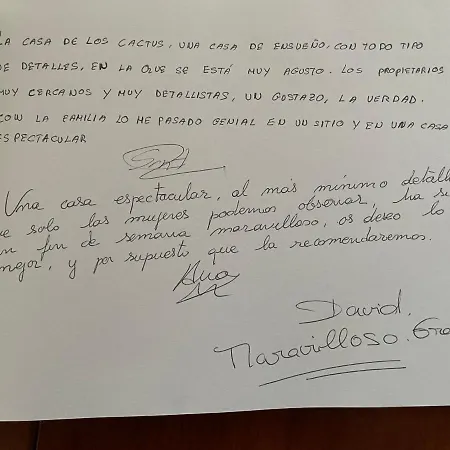 LA CASA DE LOS CACTUS, UNA CASA DE ENSUEÑO, CON TODO TIPO
DE DETALLES, EN LA QUE SE ESTÁ MUY AGUSTO. LOS PROPIETARIOS
MUY CERCANOS Y MUY DETALLISTAS, UN GUSTAZO, LA VERDAD.
CON LA FAMILIA LO HE PASADO GENIAL EN UN SITIO Y EN UNA CASA
ESPECTACULAR
Una casa espectacular, al más mínimo detalle
que solo las mujeres podemos observar, ha
un fin de semana maravilloso, os deseo lo
mejor, y por supuesto que la recomendaremos.
David.
Maravilloso.